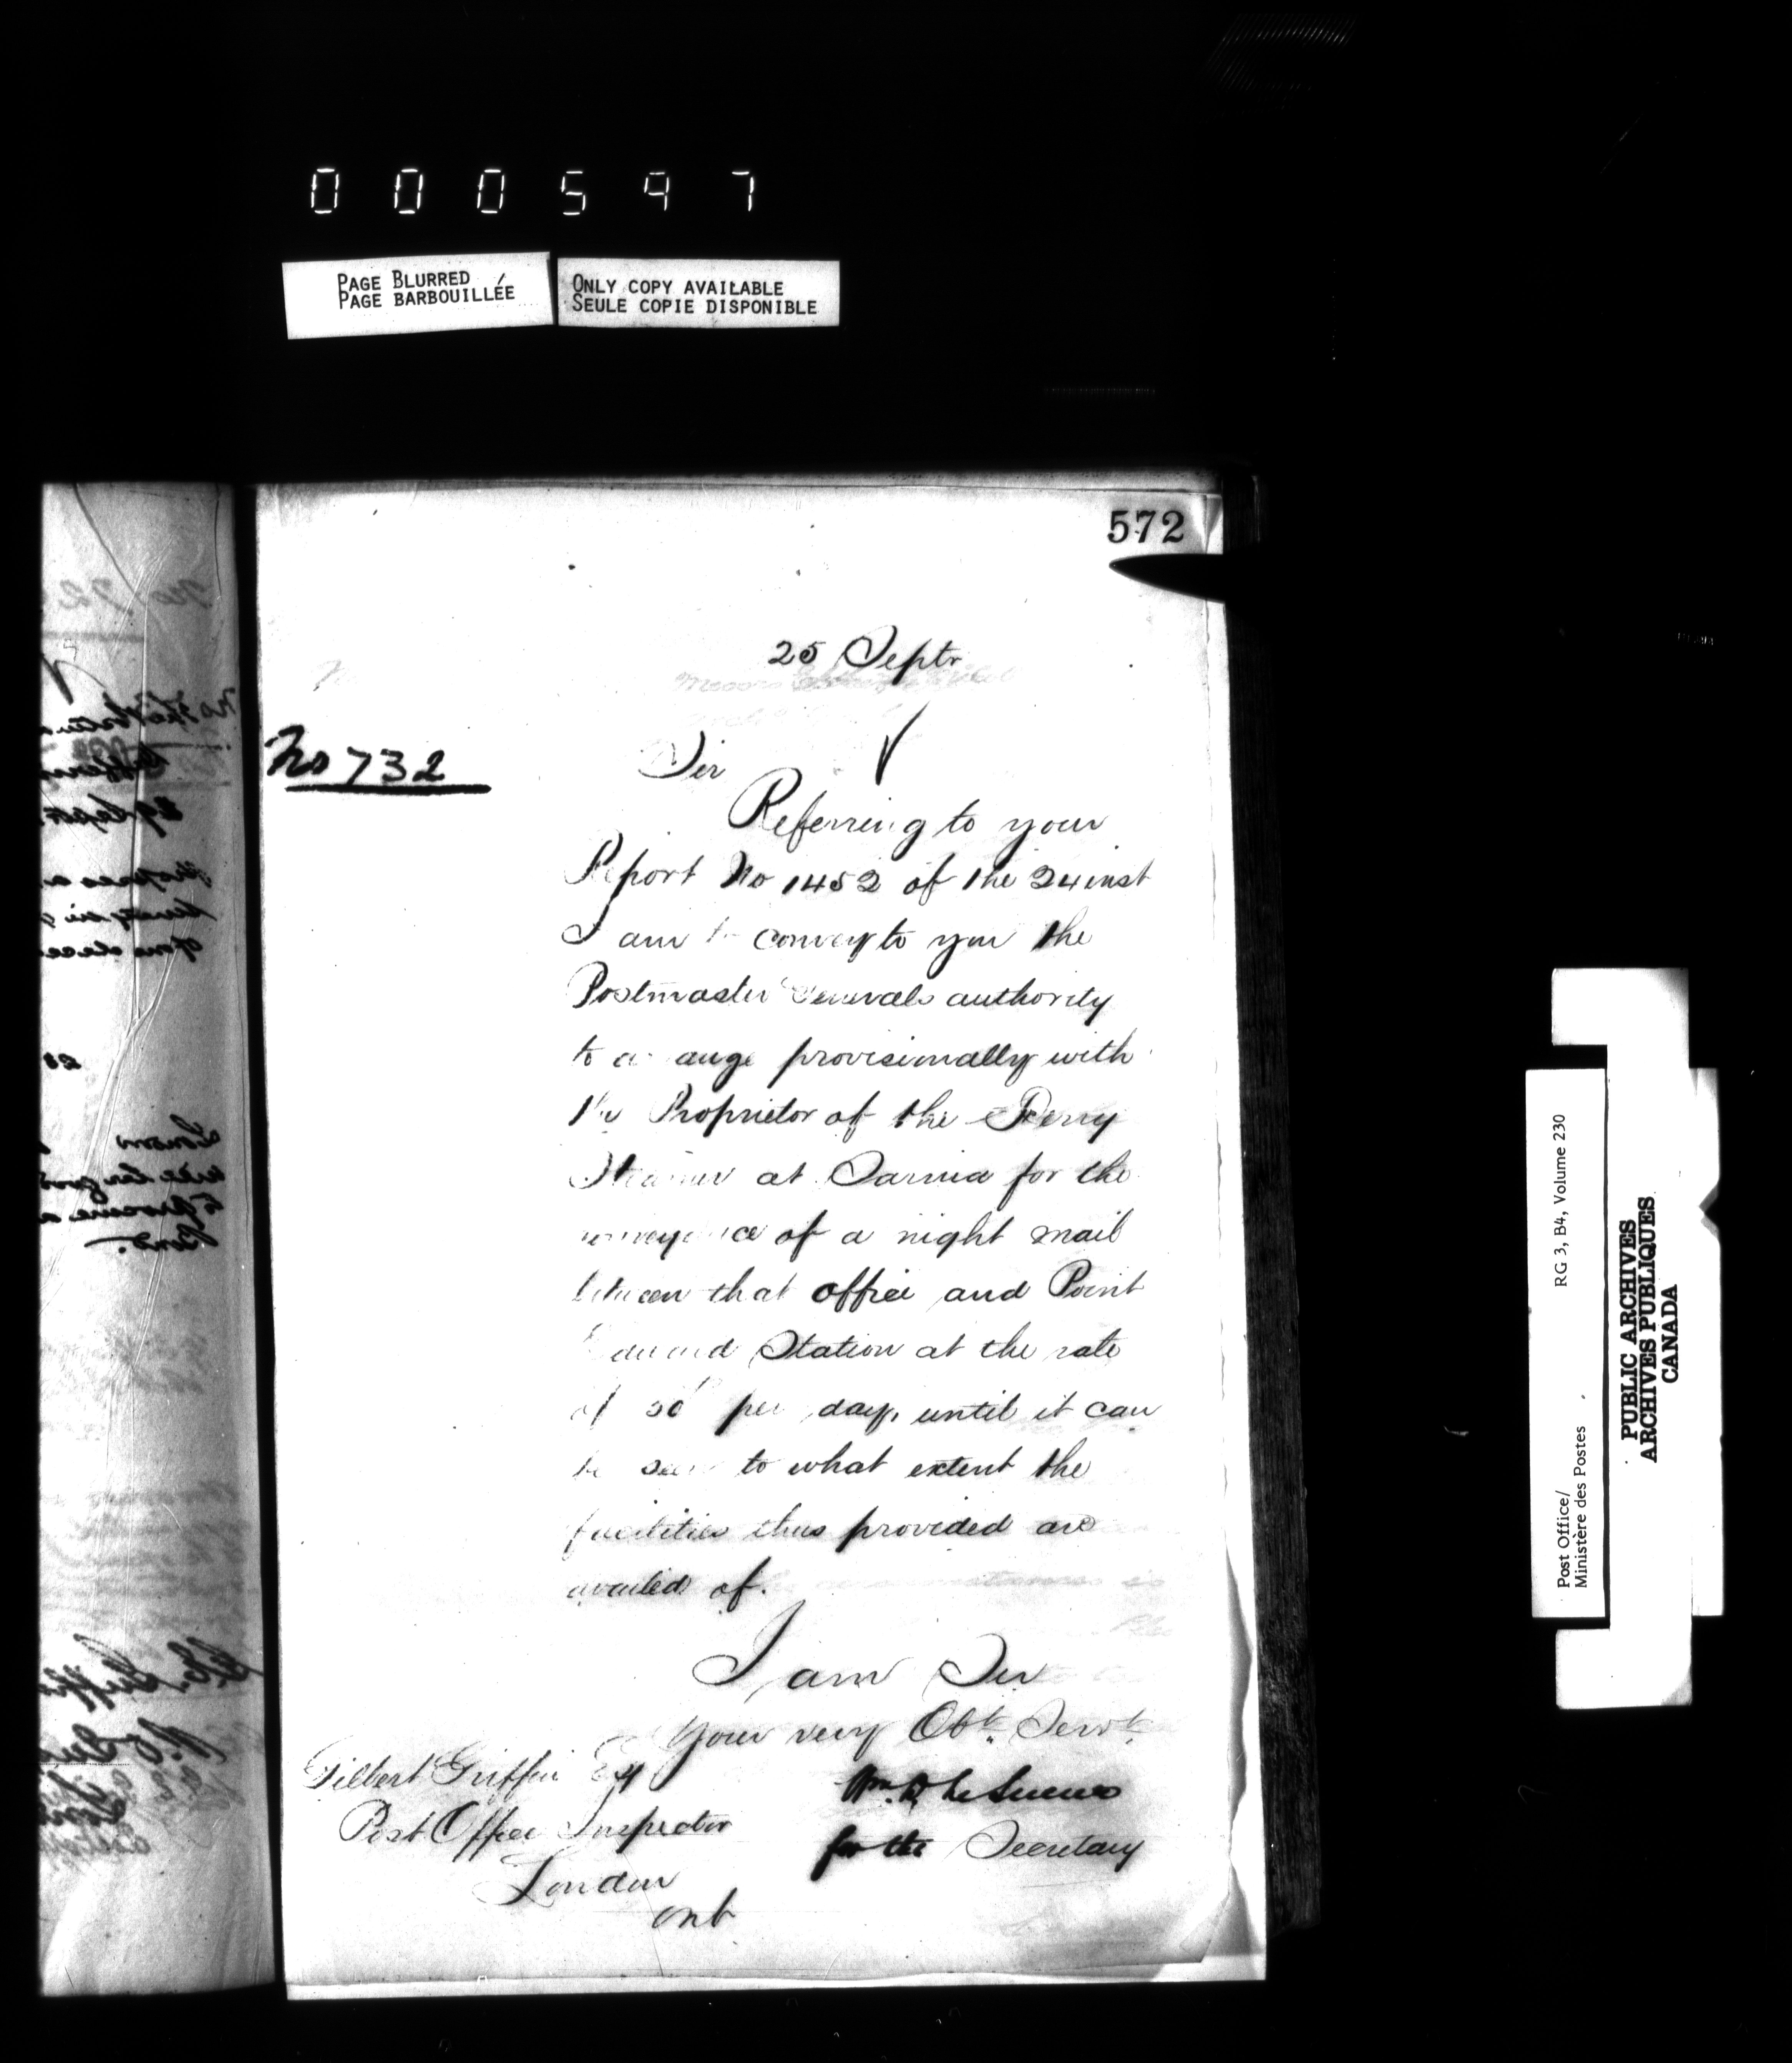 000597
PAGE BLURRED
PAGE BARBOUILLÉE
ONLY COPY AVAILABLE
SEULE COPIE DISPONIBLE
572
25 Septr
No 732
Sir
Referring to your
Report No 1452 of the 24 inst
I am to convey to you the
Postmaster Generals authority
to arrange provisionally with
the Proprietor of the Ferry
Steamer at Sarnia for the
conveyance of a night mail
between that office and Point
Edward Station at the rate
of per day, until it can
be seen to what extent the
facilities thus provided are
availed of.
I am Sir
Your very Obt. Servt.
Gilbert Griffin Esq
Post Office Inspector
London
Ont
Wm. D. LeSueur
for the Secretary
Post Office/
Ministère des Postes
RG 3, B4, Volume 230
PUBLIC ARCHIVES
ARCHIVES PUBLIQUES
CANADA